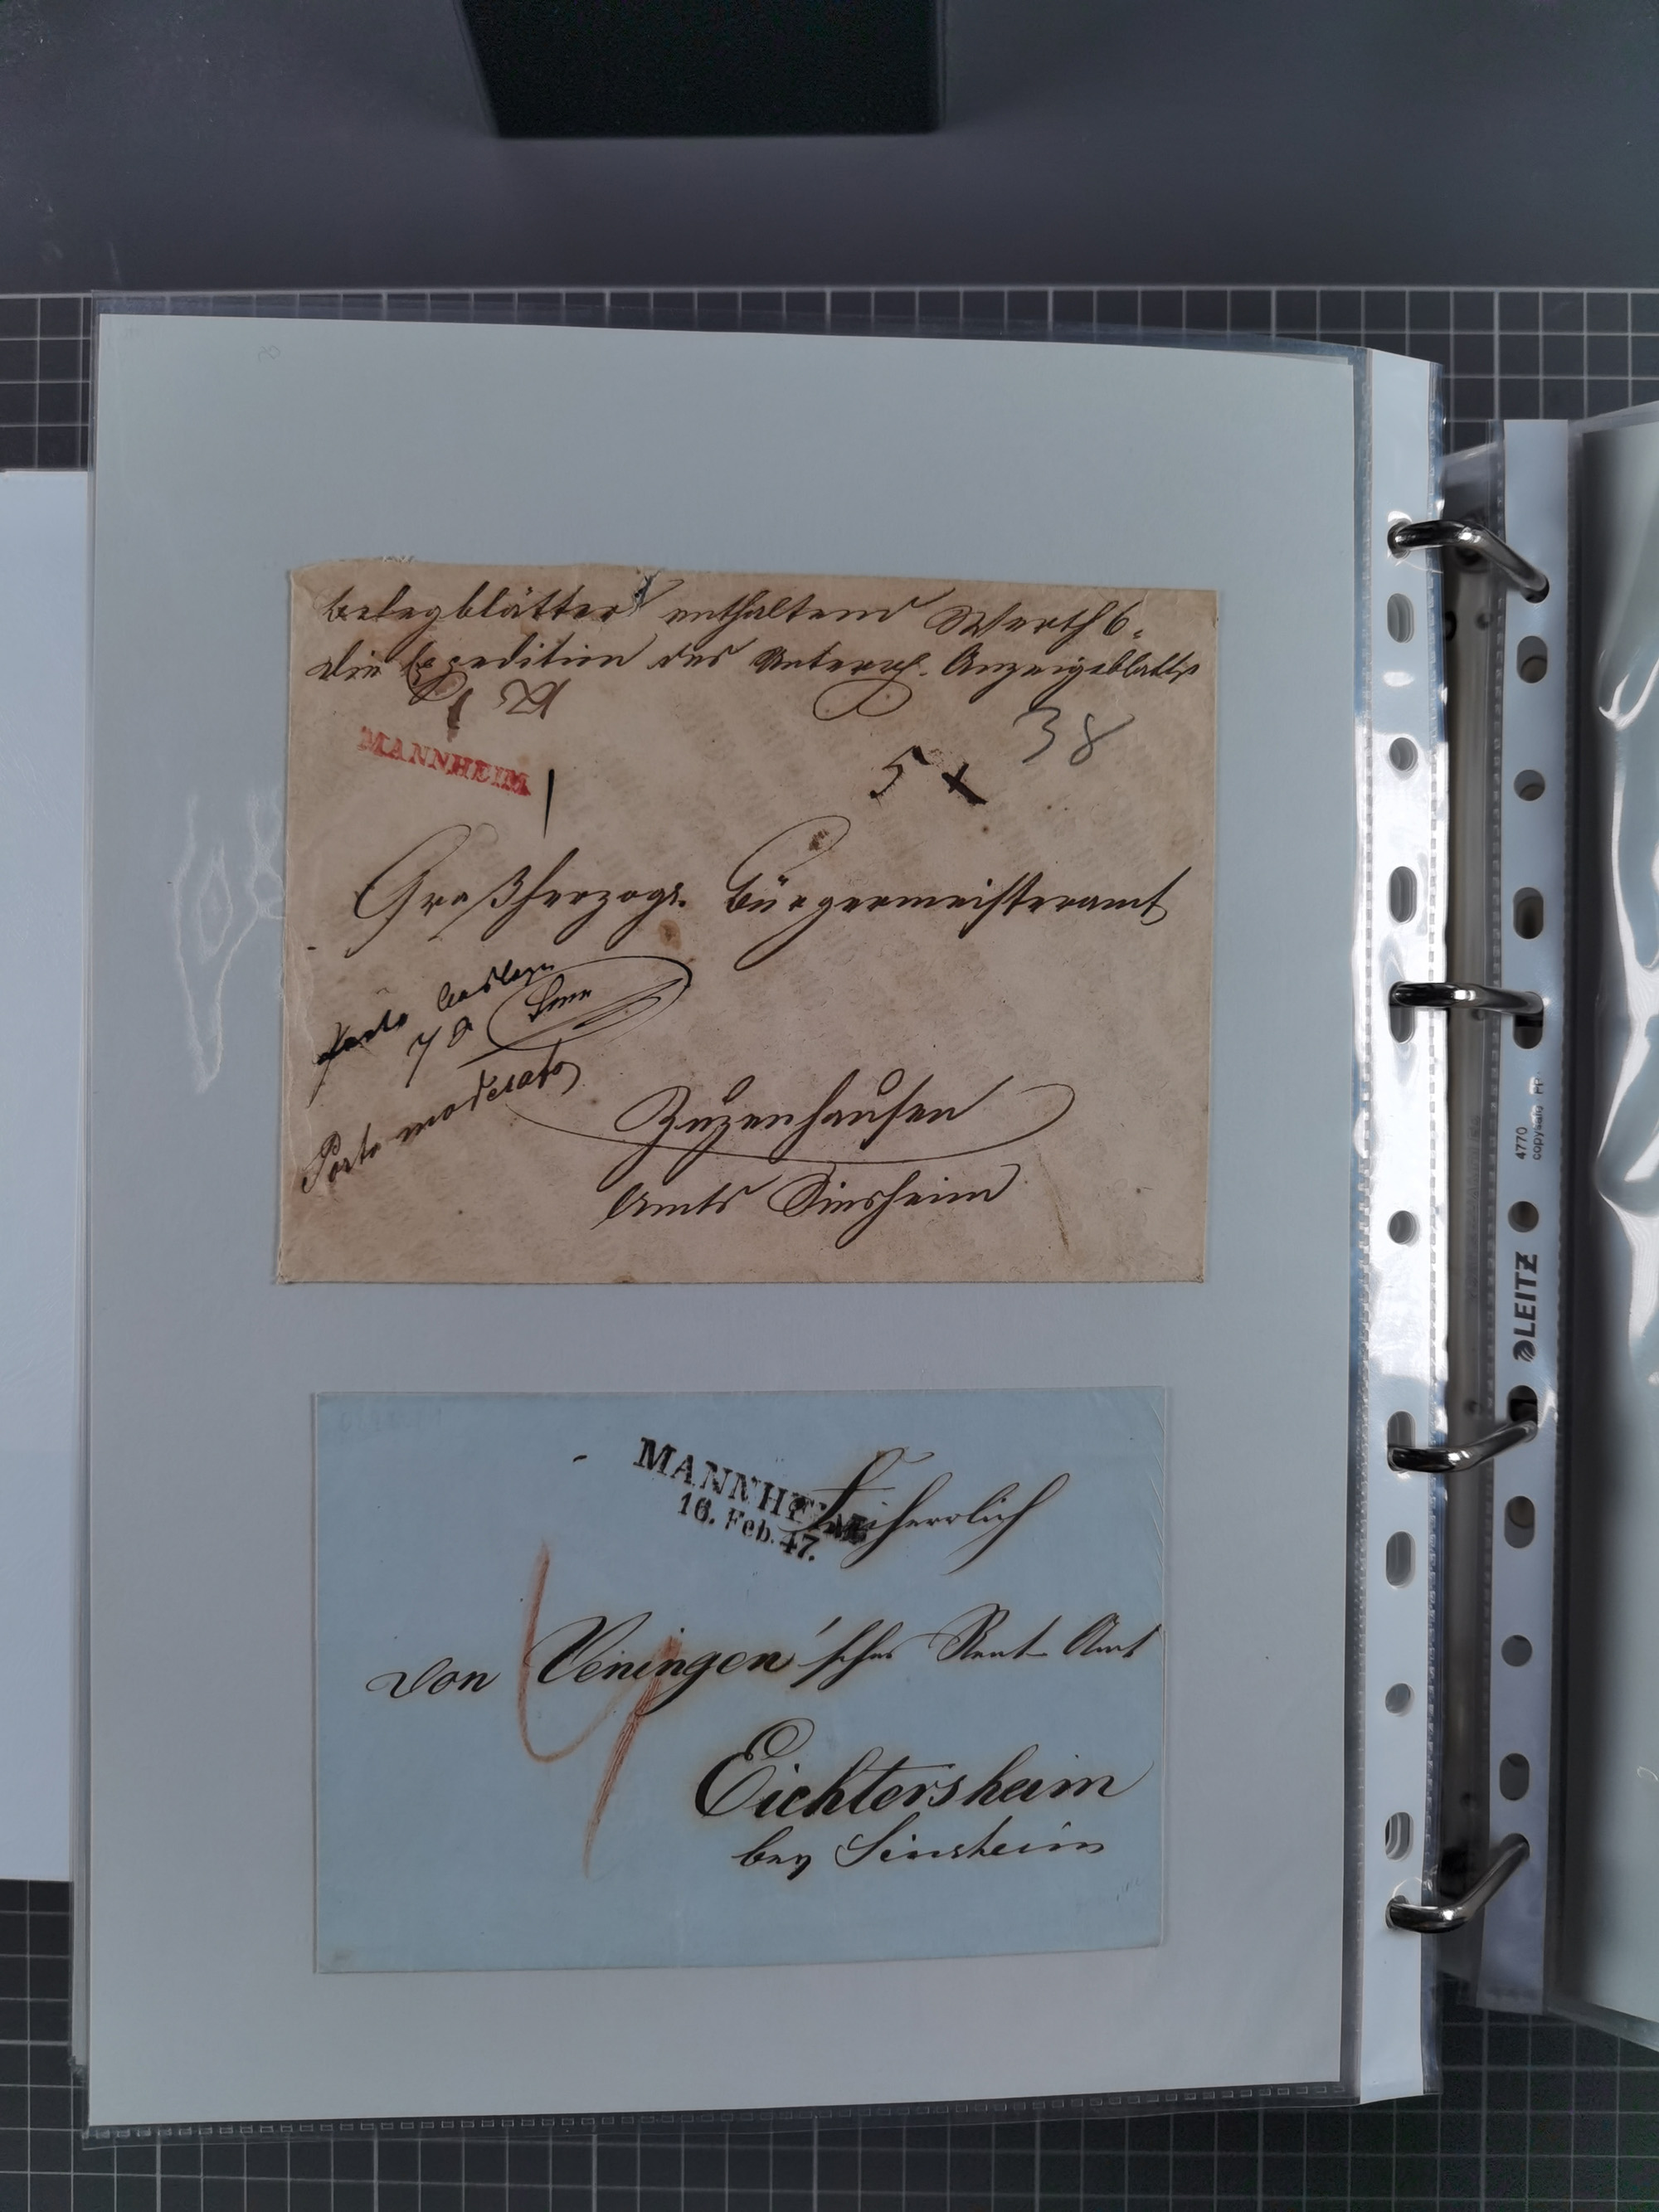 Belegblätter enthaltend Werth 6
die Expedition des Unterrh. Anzeigeblatts
MANNHEIM
5 x
38
Großherzogl. Bürgermeisteramt
Porto moderato
Zuzenhausen
Amts Sinsheim
MANNHEIM
16. Feb. 47.
Freiherrlich
von Veningen'sches Rent-Amt
Eichtersheim
bey Sinsheim
4
4770
copysafe PP
LEITZ